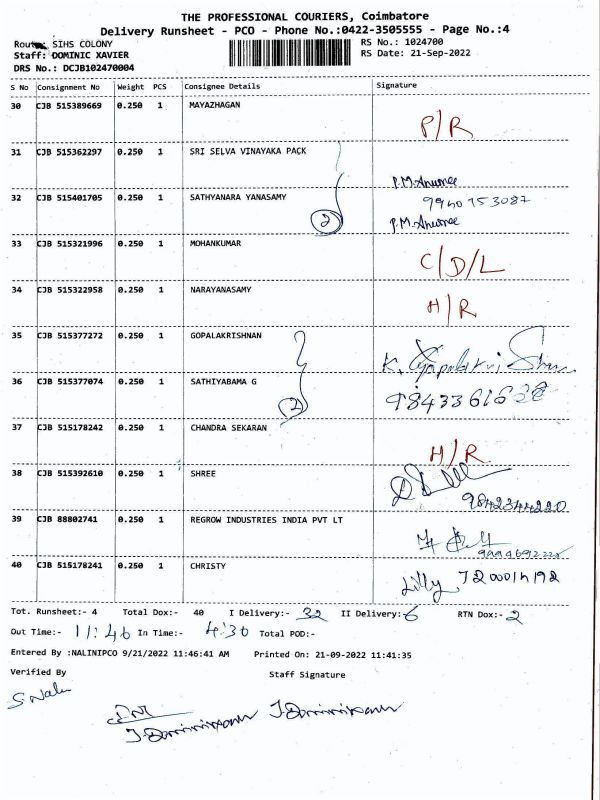 THE PROFESSIONAL COURIERS, Coimbatore
Delivery Runsheet - PCO - Phone No.:0422-3505555 - Page No.:4
Route: SIHS COLONY RS No.: 1024700
Staff: DOMINIC XAVIER RS Date: 21-Sep-2022
DRS No.: DCJB102470004
S No Consignment No Weight PCS Consignee Details Signature
30 CJB 515389669 0.250 1 MAYAZHAGAN P/R
31 CJB 515362297 0.250 1 SRI SELVA VINAYAKA PACK
32 CJB 515401705 0.250 1 SATHYANARA YANASAMY 2
33 CJB 515321996 0.250 1 MOHANKUMAR C/D/L
34 CJB 515322958 0.250 1 NARAYANASAMY H/R
35 CJB 515377272 0.250 1 GOPALAKRISHNAN
36 CJB 515377074 0.250 1 SATHIYABAMA G 2
37 CJB 515178242 0.250 1 CHANDRA SEKARAN H/R
38 CJB 515392610 0.250 1 SHREE 9842344220
39 CJB 88802741 0.250 1 REGROW INDUSTRIES INDIA PVT LT
40 CJB 515178241 0.250 1 CHRISTY Lilly
Tot. Runsheet:- 4 Total Dox:- 40 I Delivery:- 32 II Delivery:- 6 RTN Dox:- 2
Out Time:- 11:46 In Time:- 4:30 Total POD:-
Entered By :NALINIPCO 9/21/2022 11:46:41 AM Printed On: 21-09-2022 11:41:35
Verified By Staff Signature